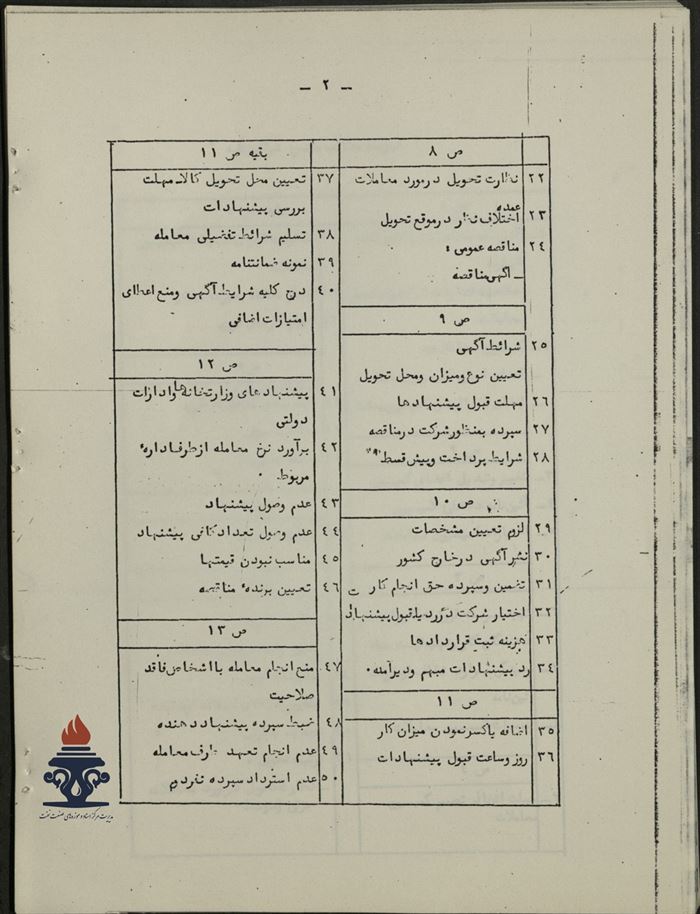 - ۲ -
ص ۸
۲۲ نظارت تحویل در مورد معاملات
عمده
۲۳ اختلاف نظار در موقع تحویل
۲۴ مناقصه عمومی :
ـ آگهی مناقصه
ص ۹
۲۵ شرائط آگهی
تعیین نوع و میزان و محل تحویل
۲۶ مهلت قبول پیشنهادها
۲۷ سپرده بمنظور شرکت در مناقصه
۲۸ شرایط پرداخت و پیش قسط
ص ۱۰
۲۹ لزم تعیین مشخصات
۳۰ نشر آگهی در خارج کشور
۳۱ تضمین و سپرده حق انجام کار
۳۲ اختیار شرکت در رد یا قبول پیشنهاد
۳۳ هزینه ثبت قراردادها
۳۴ رد پیشنهادات مبهم و دیر آمده.
ص ۱۱
۳۵ اضافه یا کسر نمودن میزان کار
۳۶ روز و ساعت قبول پیشنهادات
بقیه ص ۱۱
۳۷ تعیین محل تحویل کالا ـ مهلت
بررسی پیشنهادات
۳۸ تسلیم شرائط تفضیلی معامله
۳۹ نمونه ضمانتنامه
۴۰ درج کلیه شرایط آگهی و منع اعطای
امتیازات اضافی
ص ۱۲
۴۱ پیشنهادهای وزارتخانه ها و ادارات
دولتی
۴۲ برآورد نرخ معامله از طرف اداره
مربوط .
۴۳ عدم وصول پیشنهاد
۴۴ عدم وصول تعداد کافی پیشنهاد
۴۵ مناسب نبودن قیمتها
۴۶ تعیین برنده مناقصه
ص ۱۳
۴۷ منع انجام معامله با اشخاص فاقد
صلاحیت
۴۸ ضبط سپرده پیشنهاد دهنده
۴۹ عدم انجام تعهد طرف معامله
۵۰ عدم استرداد سپرده نفر دوم
مدیریت مرکز اسناد و موزه‌های صنعت نفت